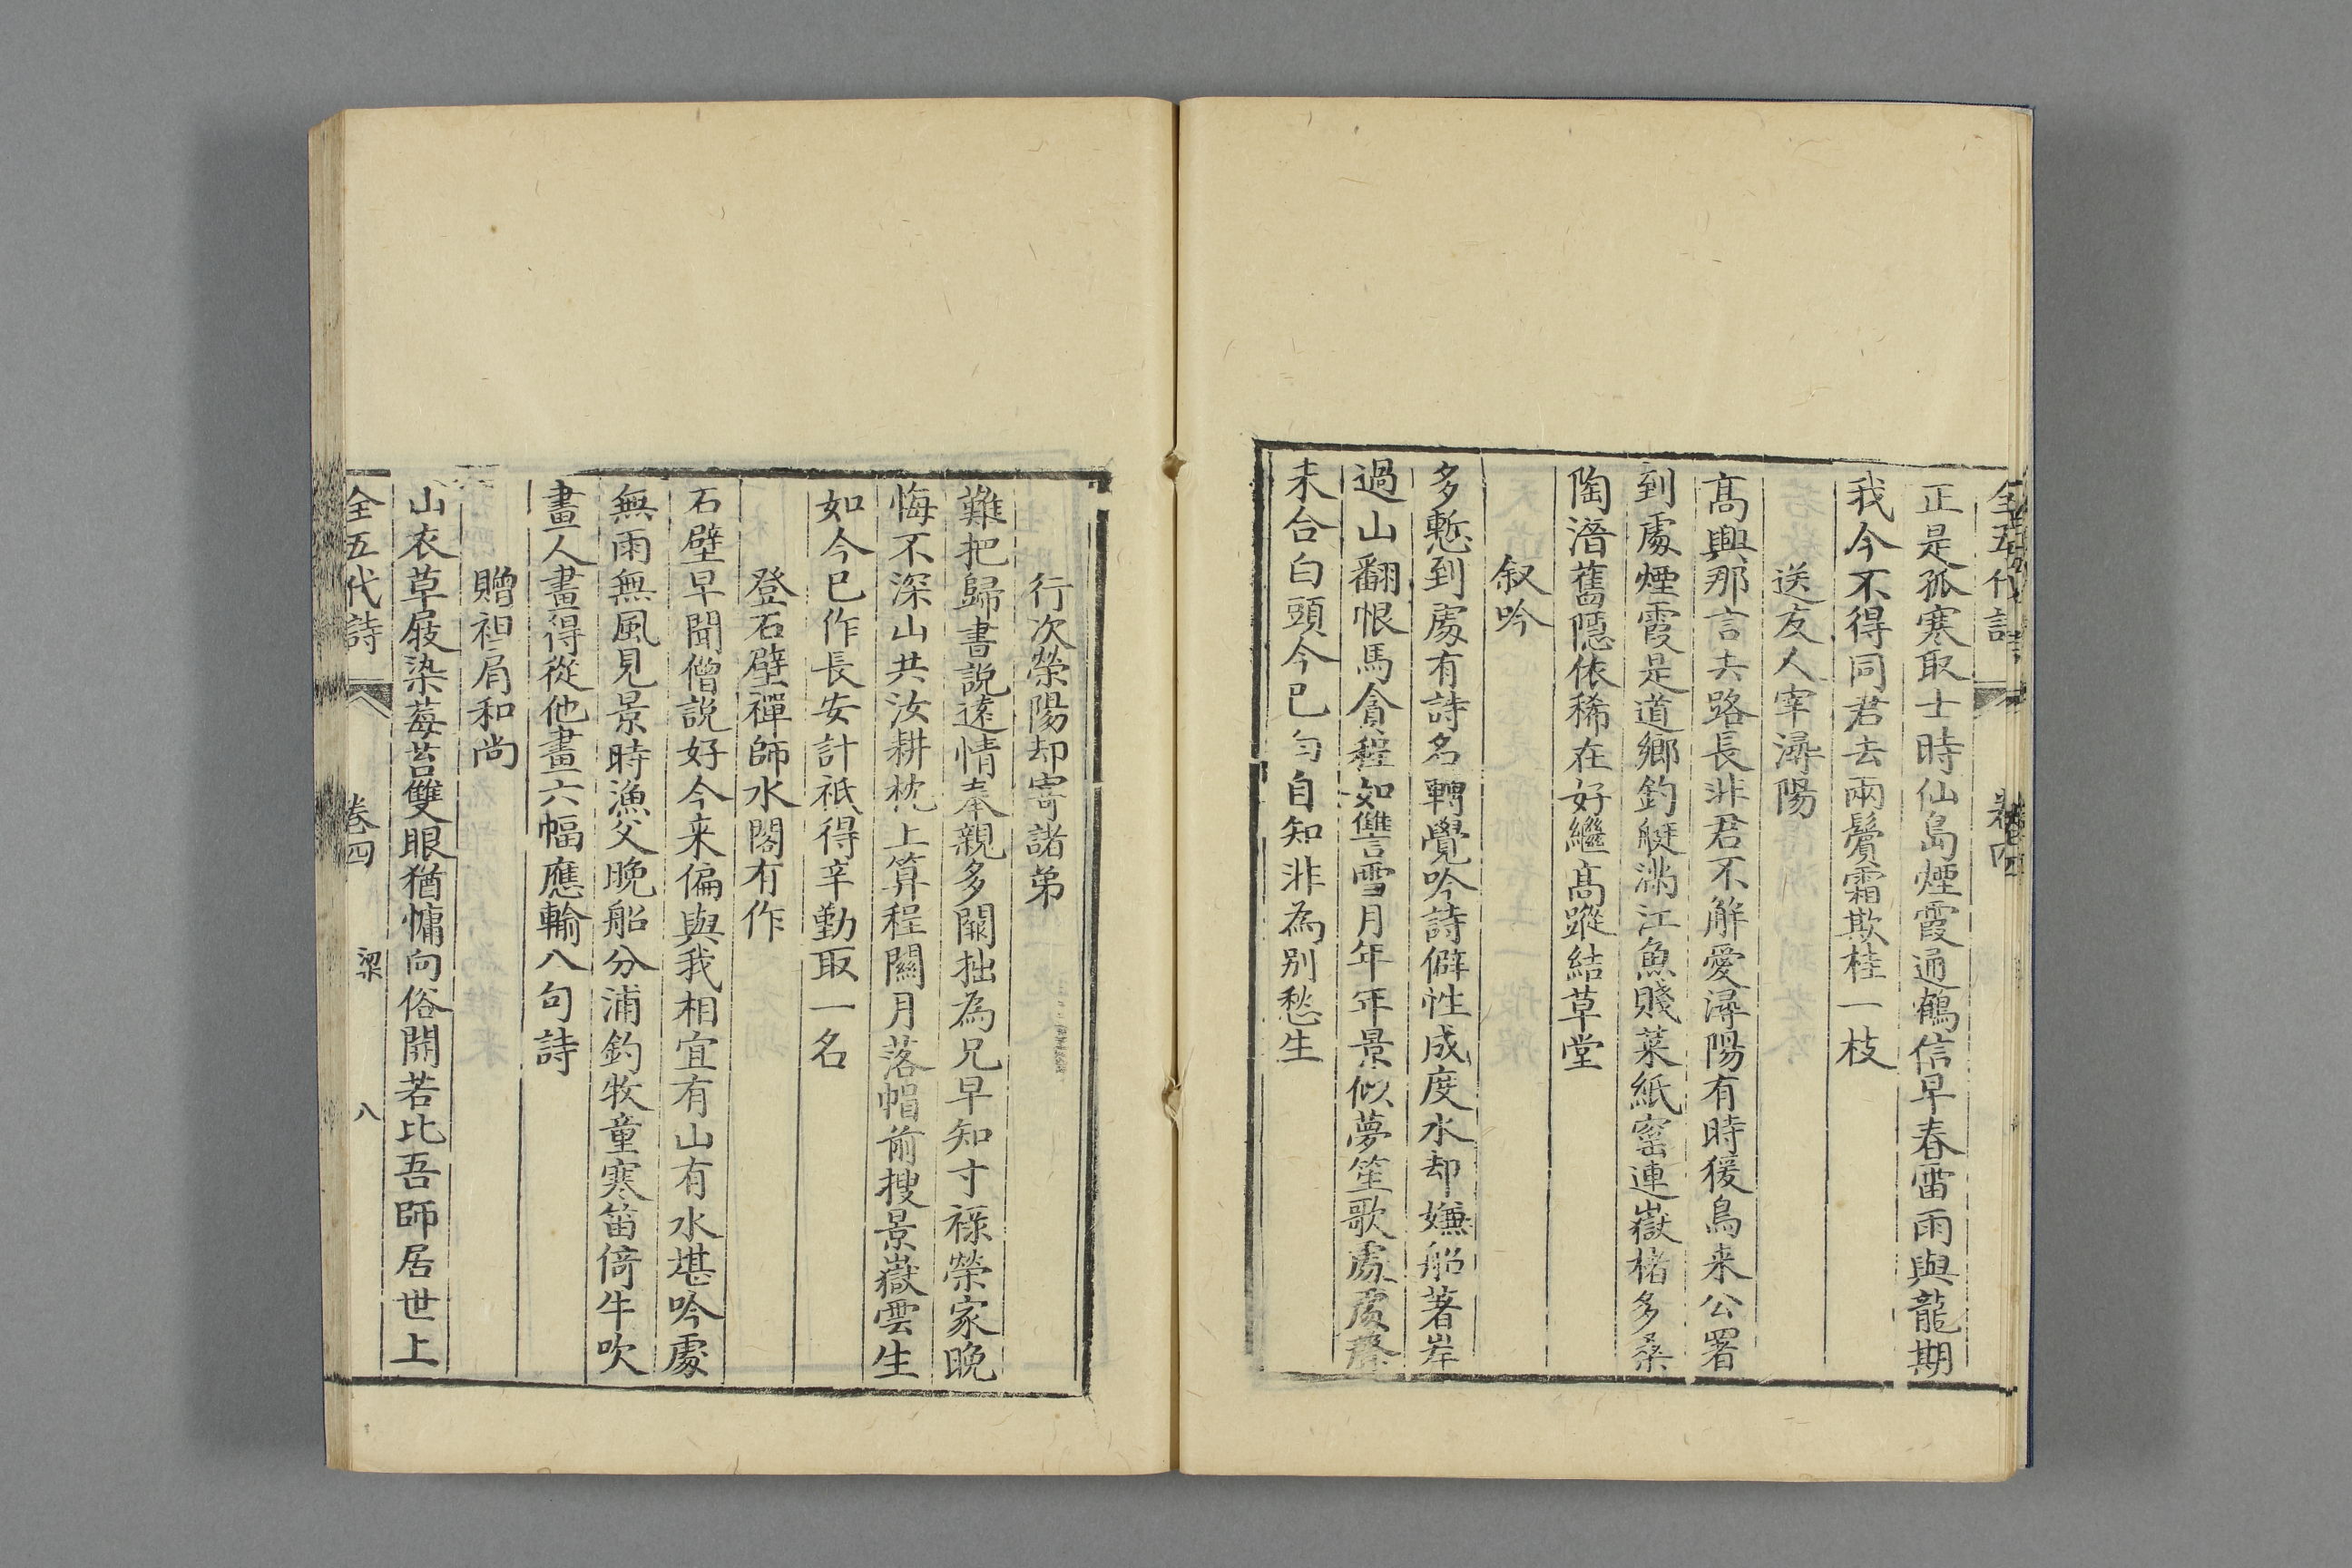 全五代詩 卷四
正是孤寒取士時仙島煙霞通鶴信早春雷雨與龍期
我今不得同君去兩鬢霜欺桂一枝
送友人宰潯陽
髙興那言去路長非君不解愛潯陽有時猨鳥来公署
到處煙霞是道鄉釣艇滿江魚賤菜紙窰連嶽楮多桑
陶潛舊隱依稀在好繼髙蹤結草堂
叙吟
多慙到處有詩名轉覺吟詩僻性成度水却嫌船著岸
過山翻恨馬貪程如讐雪月年年景似夢笙歌處處聲
未合白頭今已白自知非為别愁生
行次滎陽却寄諸弟
難把歸書説遠情奉親多闕拙為兄早知寸祿榮家晚
悔不深山共汝耕枕上算程關月落帽前搜景嶽雲生
如今已作長安計祇得辛勤取一名
登石壁禪師水閣有作
石壁早聞僧説好今来偏與我相宜有山有水堪吟處
無雨無風見景時漁父晚船分浦釣牧童寒笛倚牛吹
畫人畫得從他畫六幅應輸八句詩
贈袒肩和尚
山衣草屐染莓苔雙眼猶慵向俗開若比吾師居世上
全五代詩 卷四 梁 八